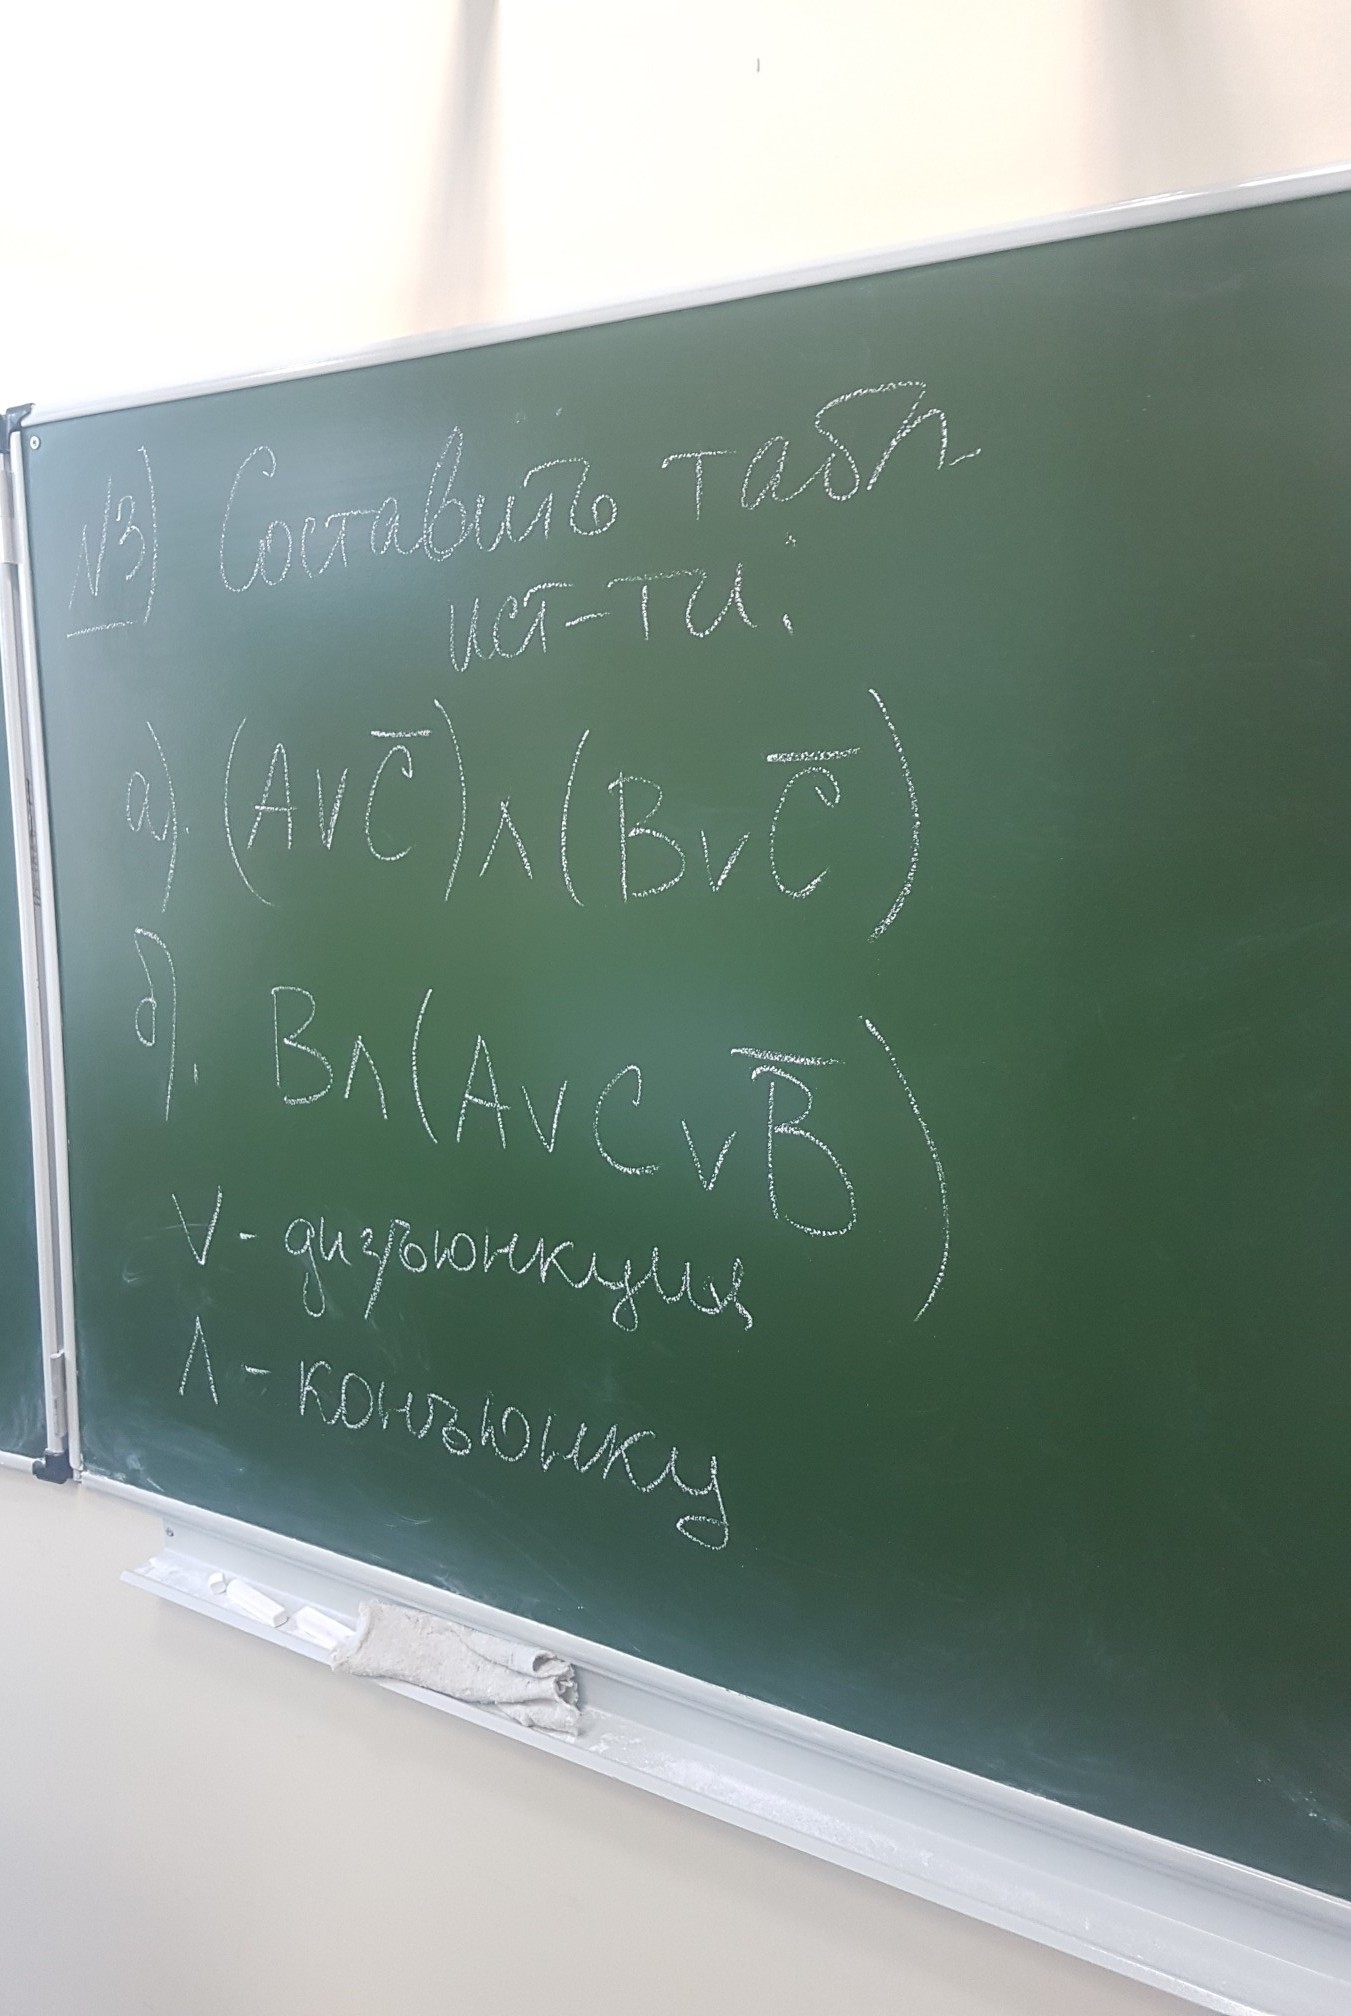 №3) Составить табл
ист-ти.
а). (A∨C̅)∧(B∨C̅)
б). B∧(A∨C∨B̅)
∨ - дизъюнкция
∧ - конъюнкц